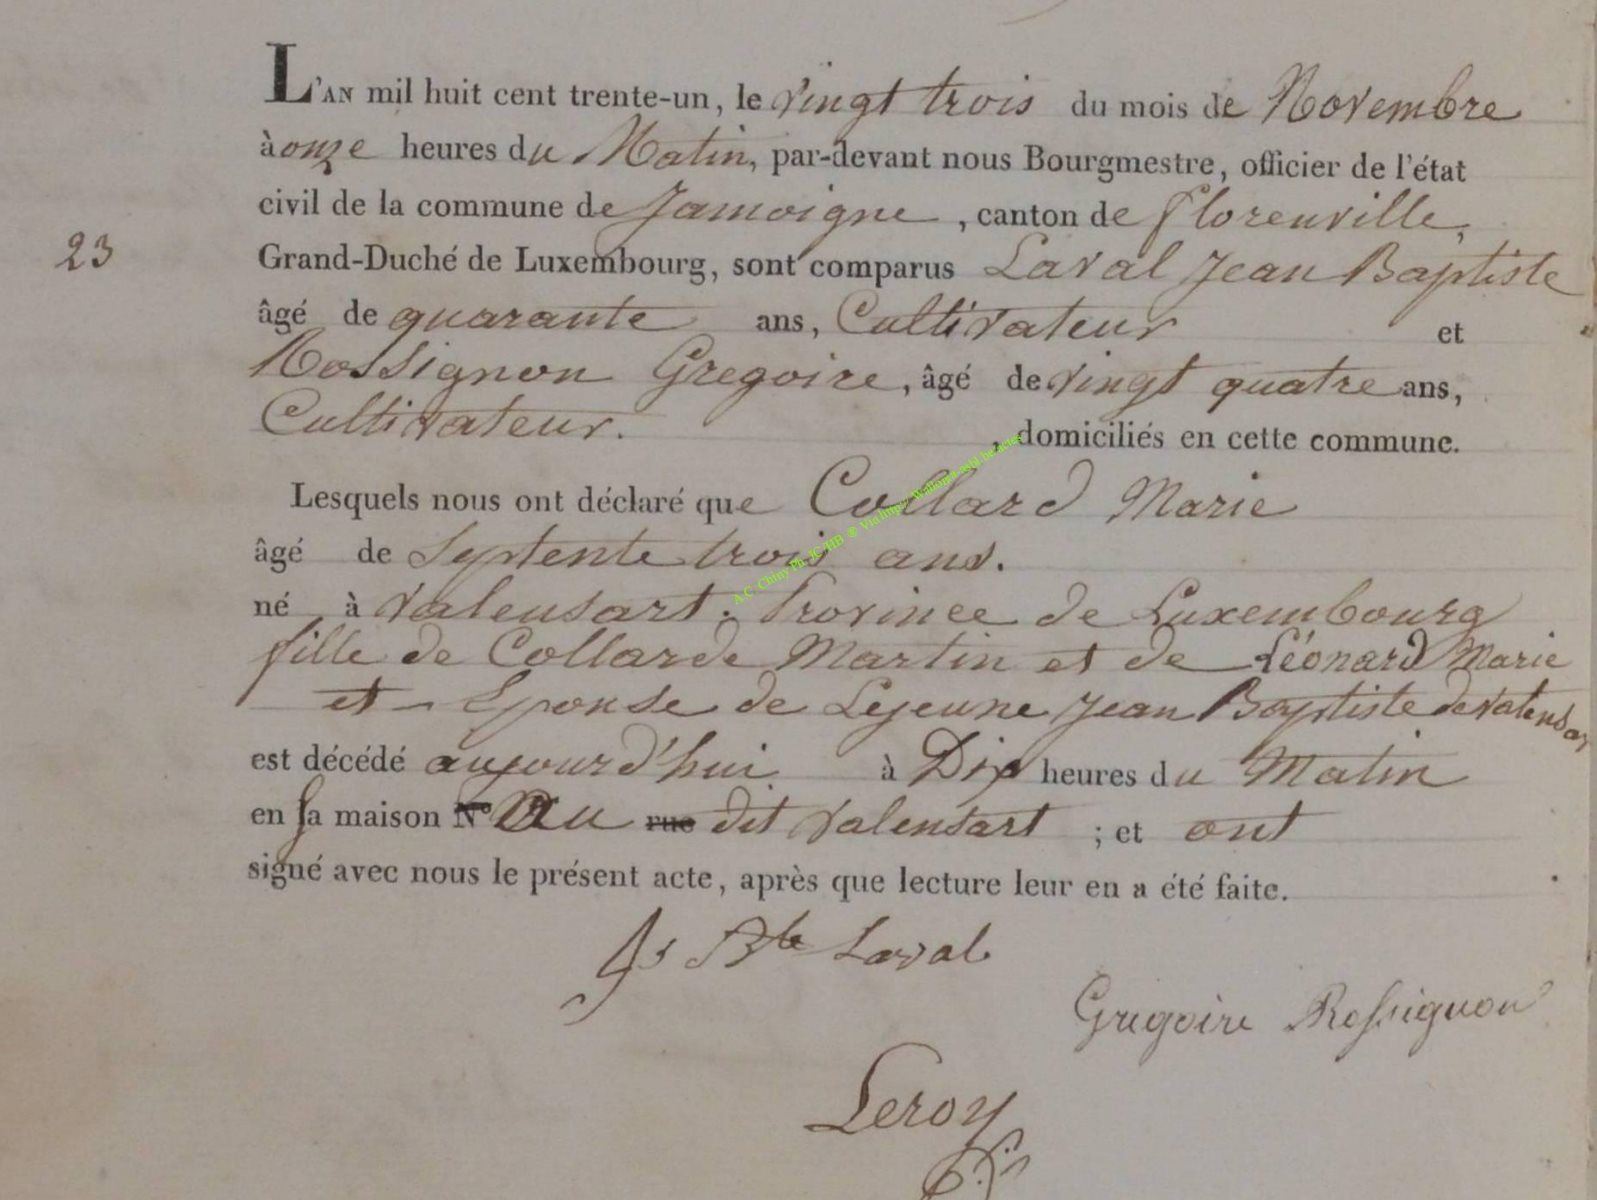 L'AN mil huit cent trente-un, le vingt trois du mois de Novembre
à onze heures du Matin, par-devant nous Bourgmestre, officier de l'état
civil de la commune de Jamoigne, canton de florenville,
23
Grand-Duché de Luxembourg, sont comparus Laval Jean Baptiste
âgé de quarante ans, Cultivateur et
Rossignon Gregoire, âgé de vingt quatre ans,
Cultivateur. , domiciliés en cette commune.
Lesquels nous ont déclaré que Collard Marie
âgé de Septente trois ans.
né à Valensart. Province de Luxembourg
fille de Collard de Martin et de Léonard Marie
et Epouse de Lejeune Jean Baptiste de Valensar
est décédé aujourd'hui à Dix heures du Matin
en sa maison N° Au rue dit Valensart ; et ont
signé avec nous le présent acte, après que lecture leur en a été faite.
A.C. Chiny Ph. JC/HB ® Via http:// Wallonia-asbl.be/actes
Js Bte Laval
Gregoire Rossignon
Leroy